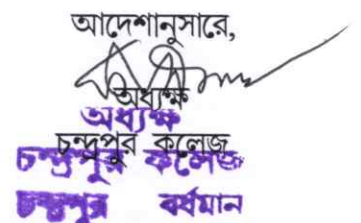 আদেশানুসারে,
অধ্যক্ষ
অধ্যক্ষ
চন্দ্রপুর কলেজ
চন্দ্রপুর কলেজ
চন্দ্রপুর বর্ধমান